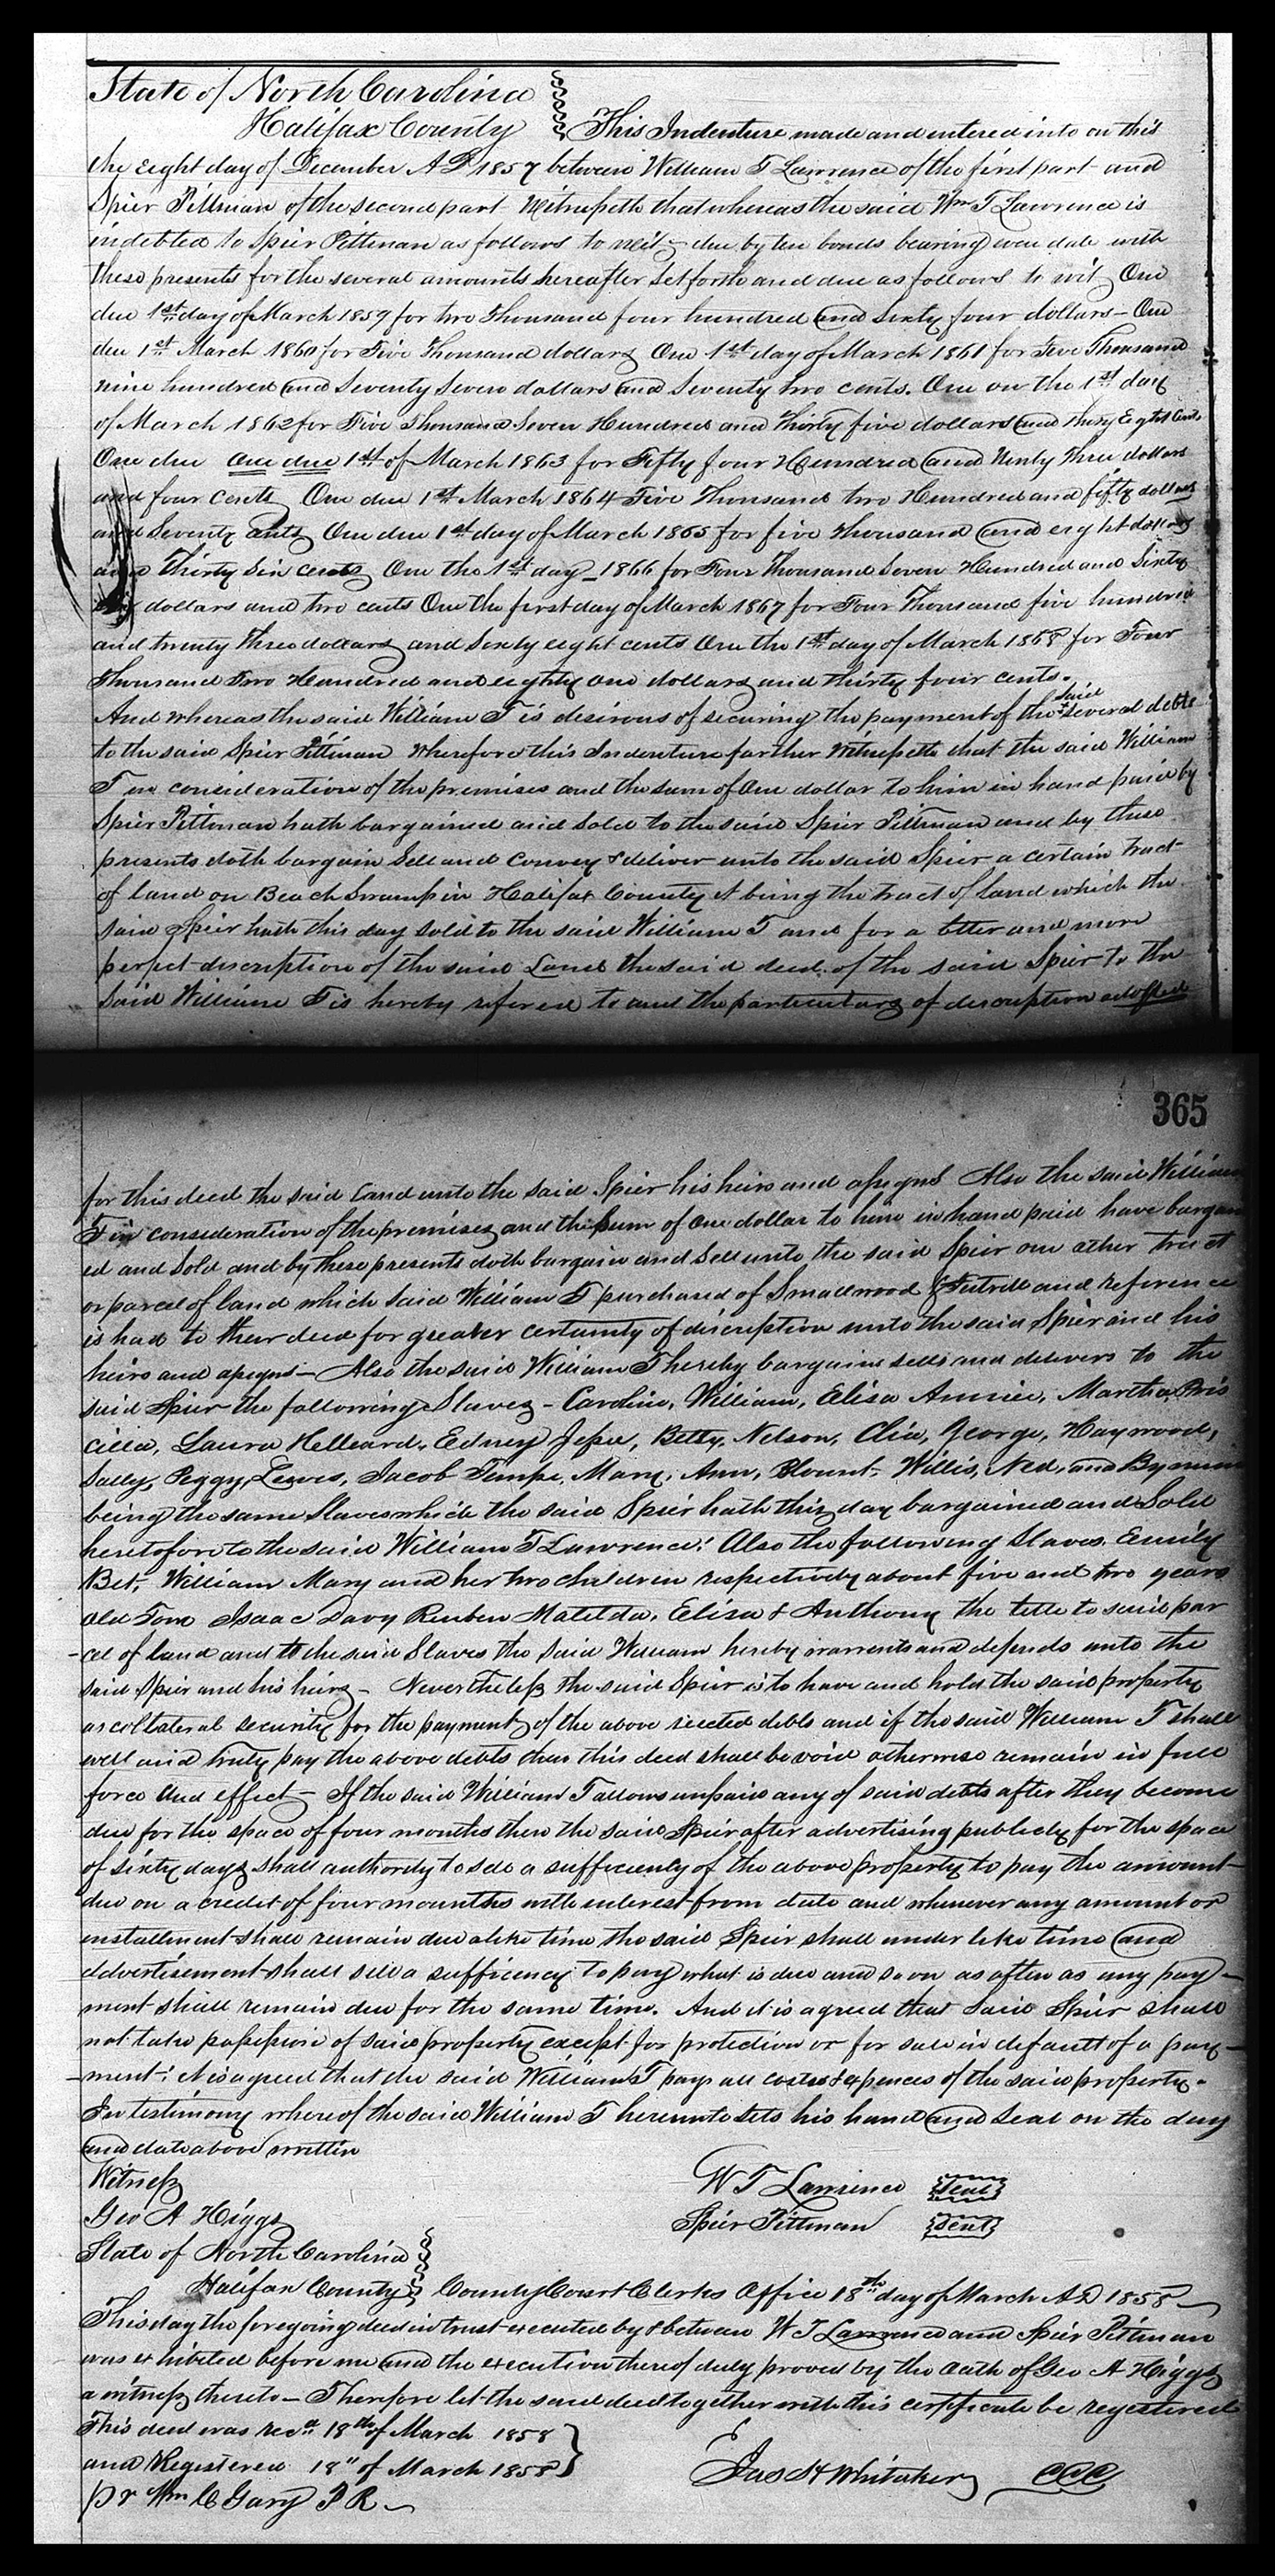 State of North Carolina
Halifax County This Indenture made and entered into on this
the eight day of December AD 1857 between William T Lawrence of the first part and
Spier Pittman of the second part Witnesseth that whereas the said Wm T Lawrence is
indebted to Spier Pittman as follows to wit, due by ten bonds bearing even date with
these presents for the several amounts hereafter set forth and due as follows to wit, One
due 1st day of March 1859 for two Thousand four hundred and Sixty four dollars - One
due 1st March 1860 for Five Thousand dollars One 1st day of March 1861 for Five Thousand
nine hundred and Seventy Seven dollars and Seventy two cents. One on the 1st day
of March 1862 for Five Thousand Seven Hundred and Thirty five dollars and thirty Eight Cents
One due One due 1st of March 1863 for Fifty four Hundred and Ninty Three dollars
and four cents One due 1st March 1864 Five Thousand two Hundred and fifty dollars
and Seventy cents One due 1st day of March 1865 for five Thousand and eight dollars
and thirty Six cents One the 1st day - 1866 for Four Thousand Seven Hundred and Sixty
dollars and two cents One the first day of March 1867 for Four Thousand five hundred
and twenty three dollars and Sixty eight cents One the 1st day of March 1868 for Four
Thousand Two Hundred and eighty one dollars and thirty four cents.
And whereas the said William T is desirous of securing the payment of the said several debts
to the said Spier Pittman Wherefore this Indenture farther Witnesseth that the said William
T in consideration of the premises and the sum of One dollar to him in hand paid by
Spier Pittman hath bargained and Sold to the said Spier Pittman and by these
presents doth bargain Sell and Convey & deliver unto the said Spier a certain tract
of land on Beach Swamp in Halifax County it being the tract of land which the
said Spier hath this day sold to the said William T and for a btter and more
perfect discription of the said Land the said deed of the said Spier to the
Said William T is hereby refered to and the particulars of discription adopted
365
for this deed the said Land unto the said Spier his heirs and assigns Also the said William
T in consideration of the premises and the Sum of One dollar to him in hand paid have bargain
ed and Sold and by these presents doth bargain and Sell unto the said Spier one other tract
or parcel of land which said William T purchased of Smallwood & Futrell and reference
is had to their deed for greater certainty of discription unto the said Spier and his
heirs and assigns - Also the said William T hereby bargains sells and delivers to the
said Spier the following Slaves - Caroline, William, Elisa Annie, Martha, Pris
cilla, Laura Helleard, Edney Jesse, Betty, Nelson, Clia, George, Haywood,
Sally, Peggy, Lewis, Jacob Tempe, Mary, Ann, Blount, Willis, Ned, and
being the same Slaves which the said Spier hath this day bargained and Sold
heretofore to the said William T Lawrence. Also the following Slaves Emily
Bet, William Mary and her two children respectively about five and two years
old Tom Isaac Davy Reuben Matilda, Elisa & Anthony the title to said par
cel of land and to the said Slaves the said William hereby warrents and defends unto the
said Spier and his heirs - Nevertheless the said Spier is to have and hold the said property
as collateral security for the payment of the above recited debts and if the said William T shall
well and truly pay the above debts then this deed shall be void otherwise remain in full
force and effect - If the said William T allows unpaid any of said debts after they become
due for the space of four months then the said Spier after advertising publicly for the space
of sixty days shall authority to sele a sufficiency of the above property to pay the amount
due on a credit of four mounths with interest from date and whenever any amount or
installment shall remain due alike time the said Spier shall under like time and
advertisement shall sell a sufficency to pay what is due and so on as often as any pay-
ment shall remain due for the same time. And it is agreed that said Spier shall
not take possession of said property except for protection or for sale in default of a pay-
-ment. it is agreed that the said William T pays all costes & expences of the said property.
In testimony whereof the said William T hereunto sets his hand and Seal on the day
and date above written
Witness W T Lawrence Seal
Geo A Higgs Spier Pittman Seal
State of North Carolina
Halifax County County Court Clerks Office 18th day of March AD 1858
This day the foregoing deed in trust executed by & between W T Lawrence and Spier Pittman
was exhibited before me and the execution thereof duly proved by the oath of Geo A Higgs
a witness thereto - Therefore let the said deed together with this certificate be regestered
This deed was recd 18th of March 1858
and Registered 18" of March 1858 Jas H Whitaker CCC
pr Wm C Gary P R